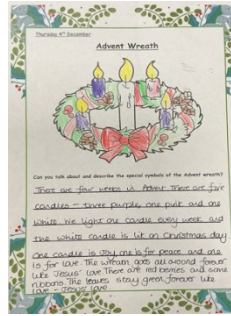 Thursday 4th December
Advent Wreath
Can you talk about and describe the special symbols of the Advent wreath?
There are four weeks in Advent. There are five
candles – three purple, one pink and one
white. We light one candle every week and
the white candle is lit on Christmas day
One candle is Joy, one is for peace and one
is for love. The wreath goes all around forever
like Jesus' love. There are red berries and some
ribbons. The leaves stay green forever like
love – Jesus' love